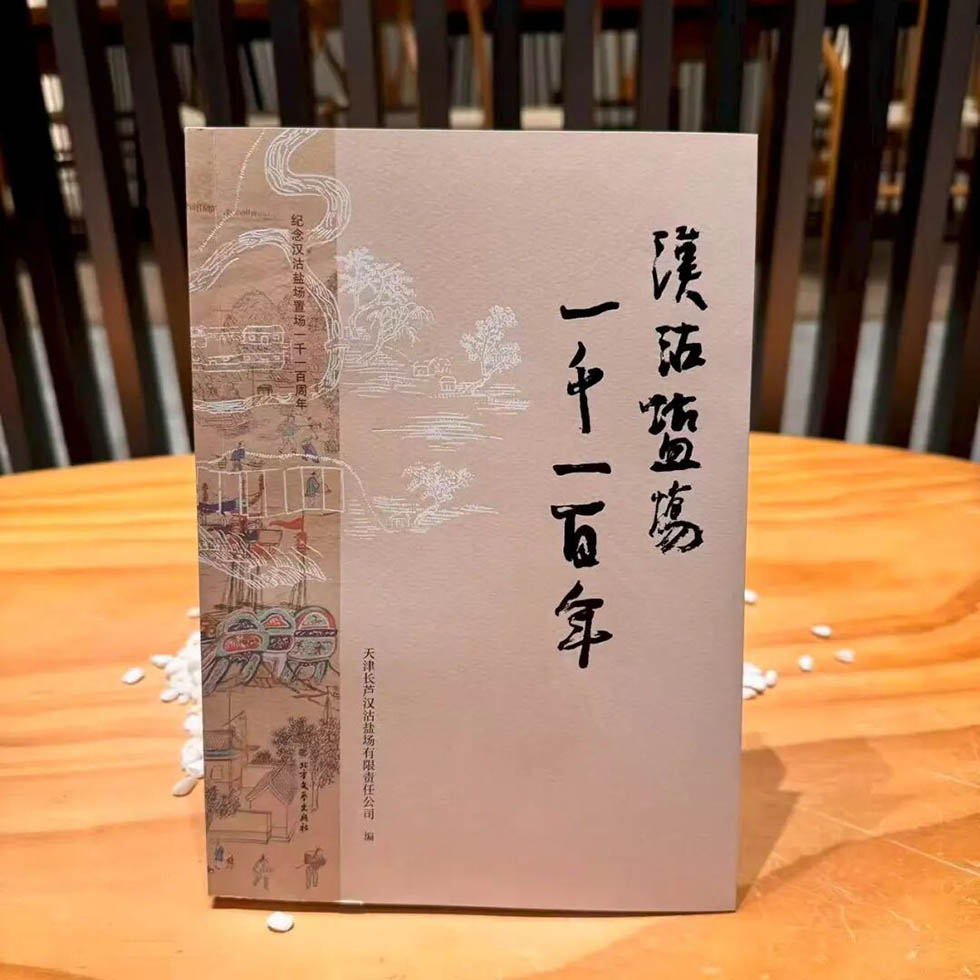 漢沽鹽場
一千一百年
纪念汉沽盐场置场一千一百周年
天津长芦汉沽盐场有限责任公司 编
北方文艺出版社